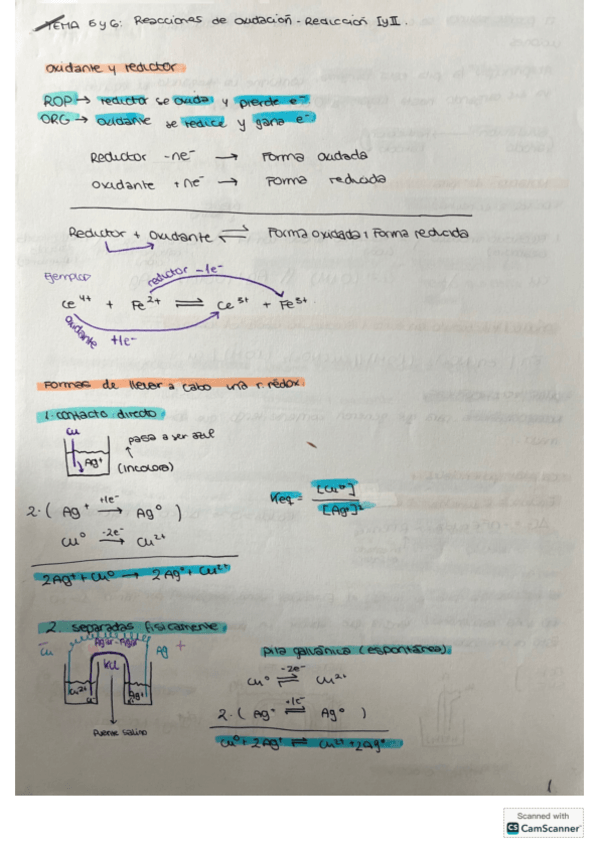 TEMA 5 y 6: Reacciones de oxidación - Reducción I y II.
oxidante y reductor
ROP → reductor se oxida y pierde e⁻
ORG → oxidante se reduce y gana e⁻
Reductor -ne⁻ → Forma oxidada
oxidante +ne⁻ → Forma reducida
Reductor + Oxidante ⇌ Forma oxidada + Forma reducida
Ejemplo
reductor -1e⁻
Ce⁴⁺ + Fe²⁺ ⇌ Ce³⁺ + Fe³⁺
oxidante +1e⁻
Formas de llevar a cabo una r. rédox.
1. contacto directo
Cu
pasa a ser azul
Ag⁺
(incoloro)
2·( Ag⁺ +1e⁻ → Ag⁰ )
Cu⁰ -2e⁻ → Cu²⁺
2Ag⁺ + Cu⁰ → 2Ag⁰ + Cu²⁺
Keq = [Cu⁰] / [Ag⁰]²
2. separadas fisicamente.
- Cu
Agar-Agar
Ag +
KCl
Cu²⁺
Ag⁺
Puente salino
pila galvánica (espontánea)
Cu⁰ -2e⁻ ⇌ Cu²⁺
2·( Ag⁺ +1e⁻ ⇌ Ag⁰ )
Cu⁰ + 2Ag⁺ ⇌ Cu²⁺ + 2Ag⁰
1
Scanned with
CS CamScanner